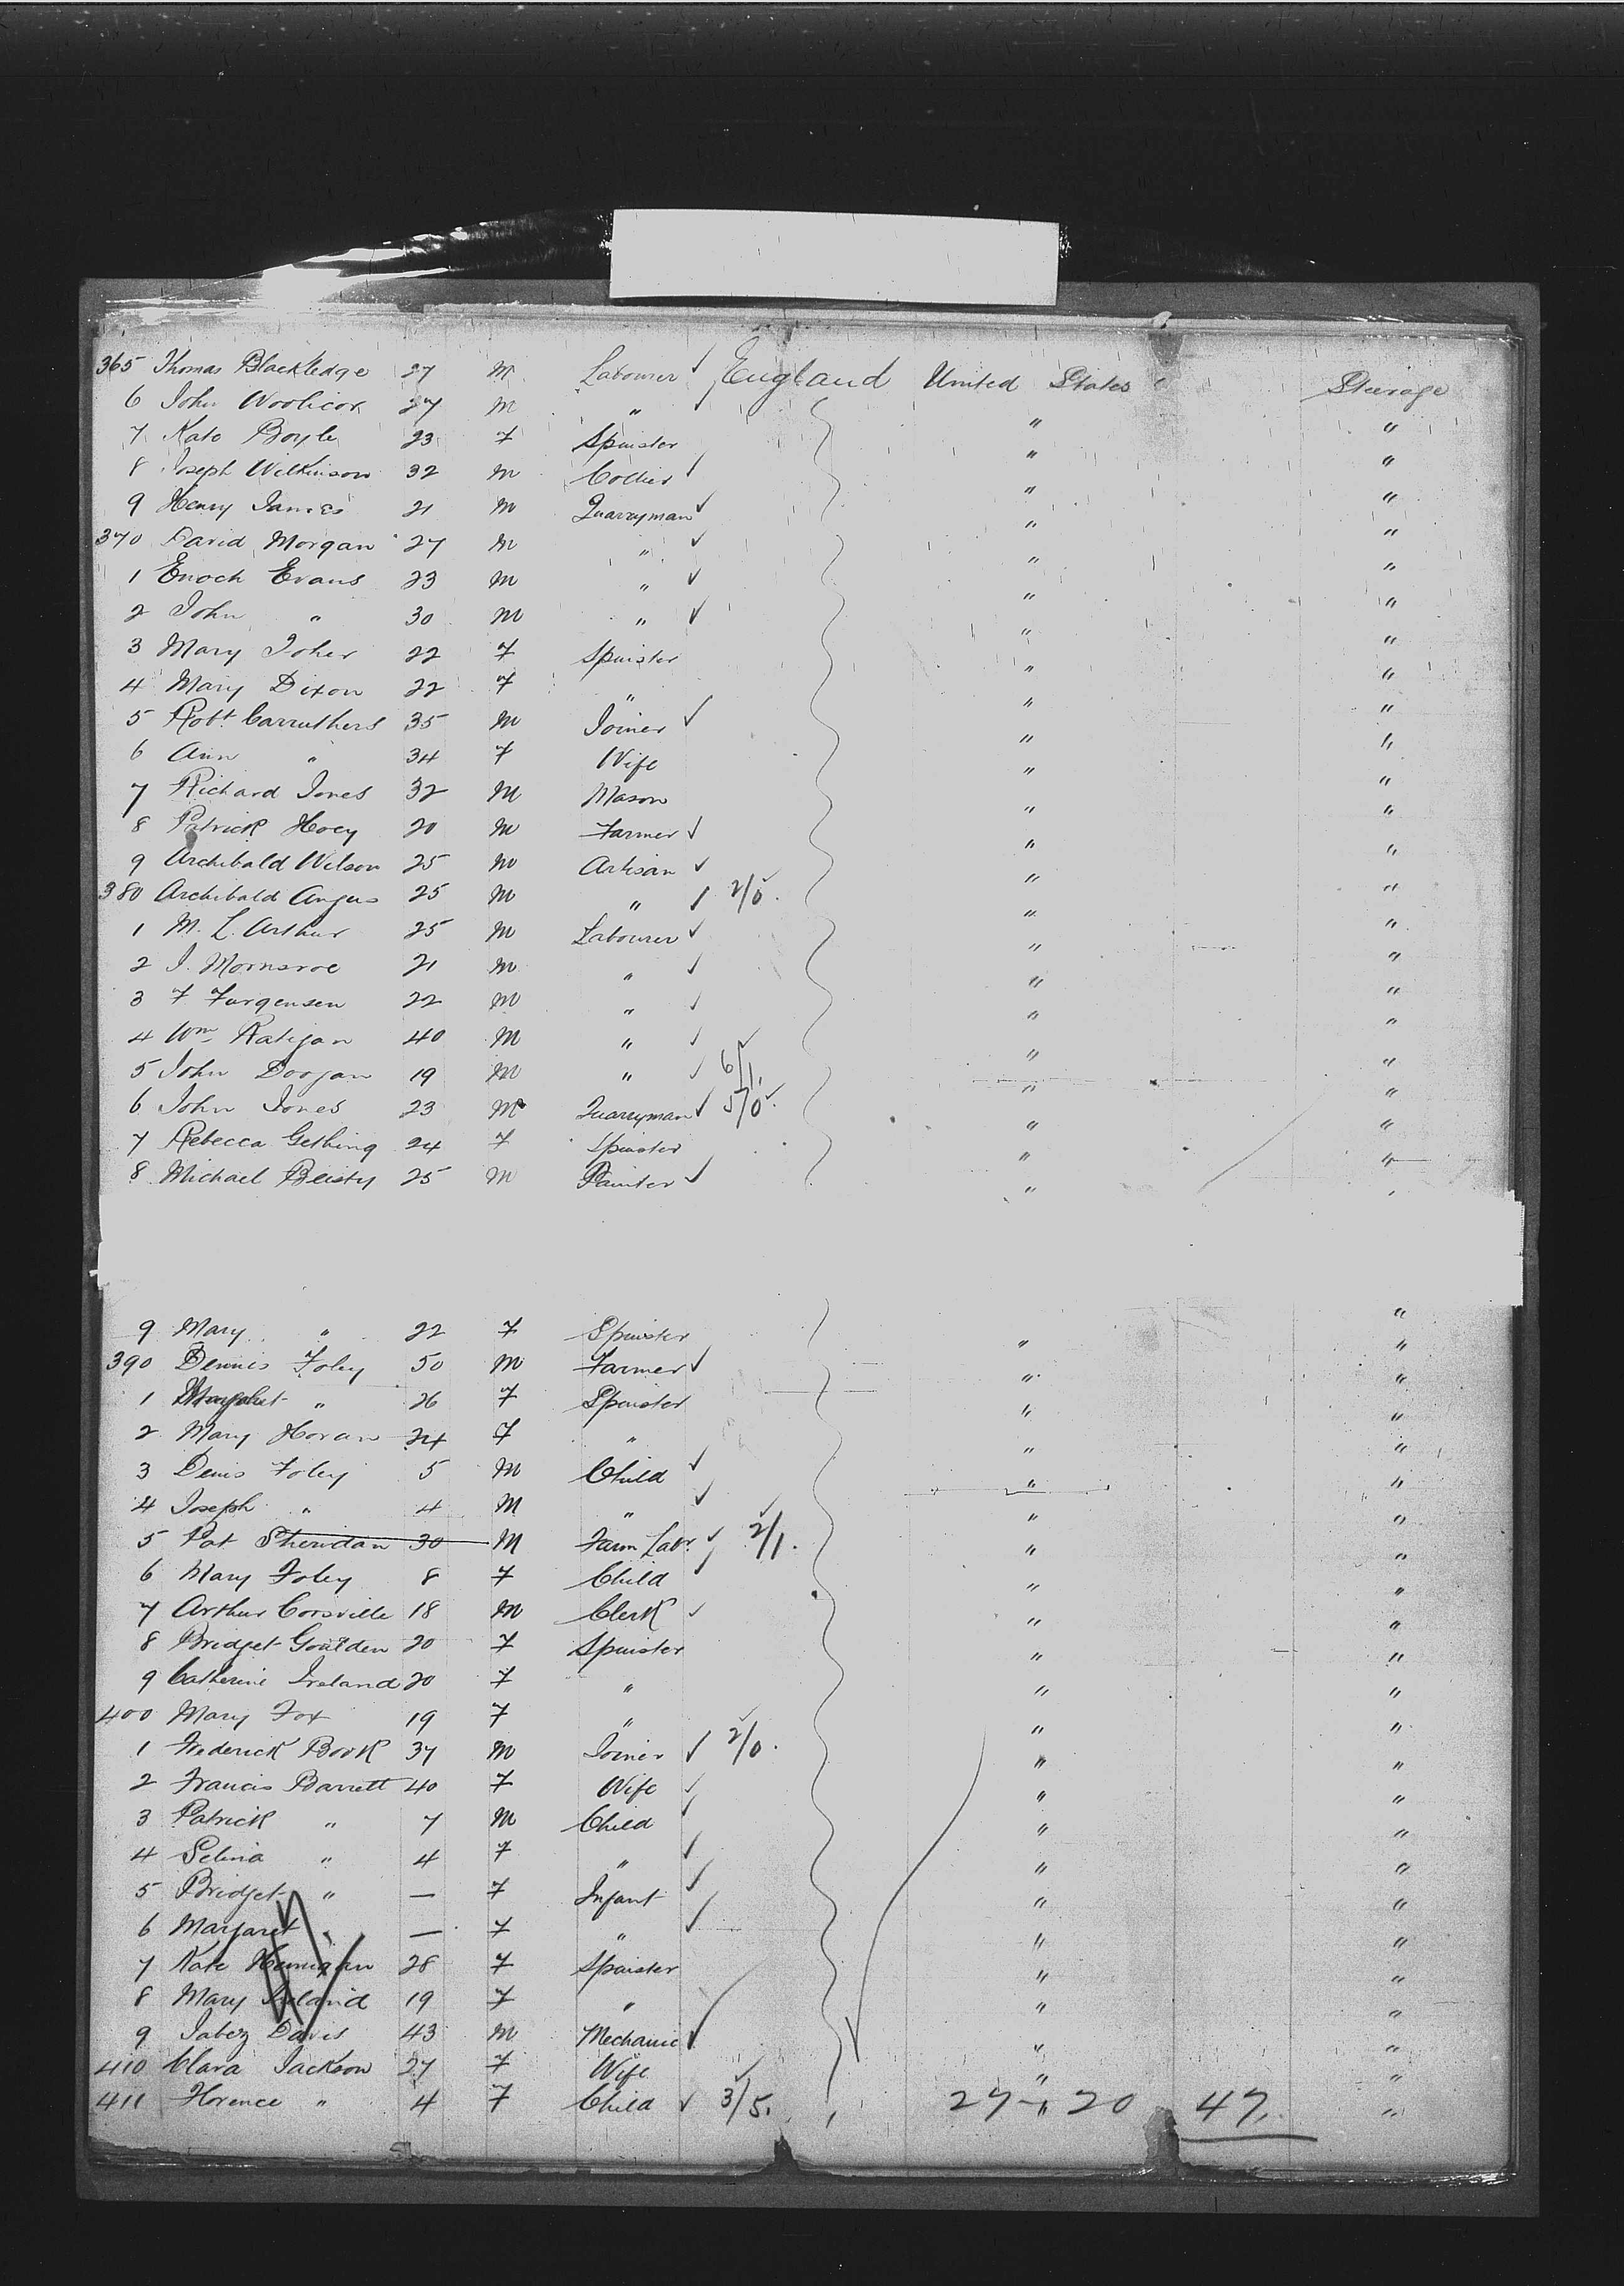 365 Thomas Blackledge 27 M Labourer England United States Steerage
6 John Woolicox 27 M " " "
7 Kate Boyle 23 F Spinster " "
8 Joseph Wilkinson 32 M Collier " "
9 Henry James 21 M Quarryman " "
370 David Morgan 27 M " " "
1 Enoch Evans 23 M " " "
2 John " 30 M " " "
3 Mary 22 F Spinster " "
4 Mary Dixon 22 F " " "
5 Robt Carruthers 35 M Joiner " "
6 Ann " 34 F Wife " "
7 Richard Jones 32 M Mason " "
8 Patrick Hoey 20 M Farmer " "
9 Archibald Wilson 25 M Artisan " "
380 Archibald Angus 25 M " 2/0. " "
1 M. L. Arthur 25 M Labourer " "
2 J. 21 M " " "
3 F Furgensen 22 M " " "
4 Wm Ratigan 40 M " " "
5 John Doogan 19 M " 6/1. " "
6 John Jones 23 M Quarryman 5/0. " "
7 Rebecca Gething 24 F Spinster " "
8 Michael Beisty 25 M Painter " "
9 Mary " 22 F Spinster " "
390 Dennis Foley 50 M Farmer " "
1 " 26 F Spinster " "
2 Mary Horan 24 F " " "
3 Denis Foley 5 M Child " "
4 Joseph " 4 M " " "
5 Pat Sheridan 30 M Farm Labr 2/1. " "
6 Mary Foley 8 F Child " "
7 Arthur Corsville 18 M Clerk " "
8 Bridget Goulden 20 F Spinster " "
9 Catherine Ireland 20 F " " "
400 Mary Fox 19 F " " "
1 Frederick Book 37 M Joiner 2/0. " "
2 Francis Barrett 40 F Wife " "
3 Patrick " 7 M Child " "
4 Selina " 4 F " " "
5 Bridget " — F Infant " "
6 Margaret " — F " " "
7 Kate 28 F Spinster " "
8 Mary Ireland 19 F " " "
9 Jabez Davis 43 M Mechanic " "
410 Clara Jackson 27 F Wife " "
411 Florence " 4 F Child 3/5. 27 - " 20 47. "